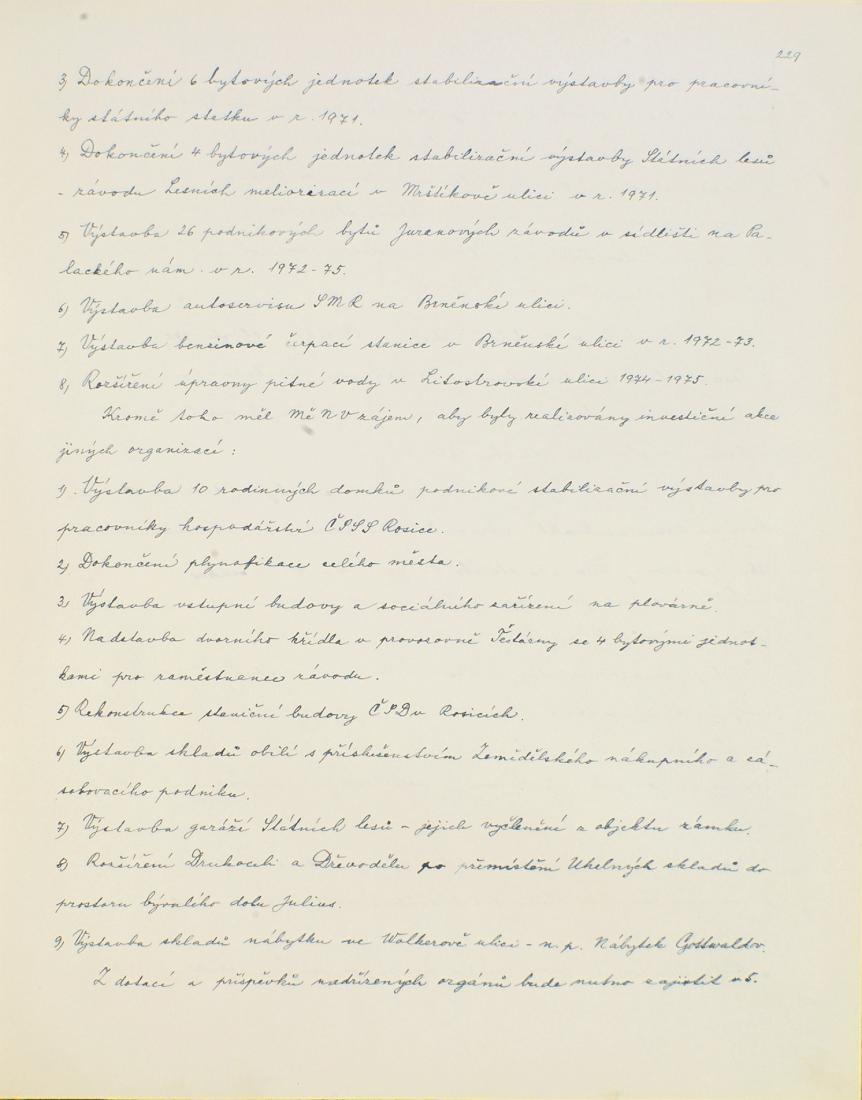 229
3) Dokončení 6 bytových jednotek stabilizační výstavby pro pracovní-
ky státního statku v r. 1971.
4) Dokončení 4 bytových jednotek stabilizační výstavby Státních lesů
- závodu Lesních meliorizací v Mrštíkově ulici v r. 1971.
5) Výstavba 26 podnikových bytů Juranových závodů v sídlišti na Pa-
lackého nám. v r. 1972-75.
6) Výstavba autoservisu SMR na Brněnské ulici.
7) Výstavba bensinové čerpací stanice v Brněnské ulici v r. 1972-73.
8) Rozšíření úpravny pitné vody v Litostrovské ulici 1974-1975.
Kromě toho měl MěNV zájem, aby byly realizovány investiční akce
jiných organizací:
1). Výstavba 10 rodinných domků podnikové stabilizační výstavby pro
pracovníky hospodářství ČSSS Rosice.
2) Dokončení plynofikace celého města.
3) Výstavba vstupní budovy a sociálního zařízení na plovárně.
4) Nadstavba dvorního křídla v provozovně Těstárny se 4 bytovými jednot-
kami pro zaměstnance závodu.
5) Rekonstrukce staniční budovy ČSD v Rosicích.
6) Výstavba skladů obilí s příslušenstvím Zemědělského nákupního a zá-
sobovacího podniku.
7) Výstavba garáží Státních lesů - jejich vyčlenění z objektu zámku.
8) Rozšíření Drukocelu a Dřevodělu po přemístění Uhelných skladů do
prostoru bývalého dolu Julius.
9) Výstavba skladů nábytku ve Wolkerově ulici - n.p. Nábytek Gottwaldov.
Z dotací a příspěvků nadřízených orgánů bude nutno zajistit v 5.